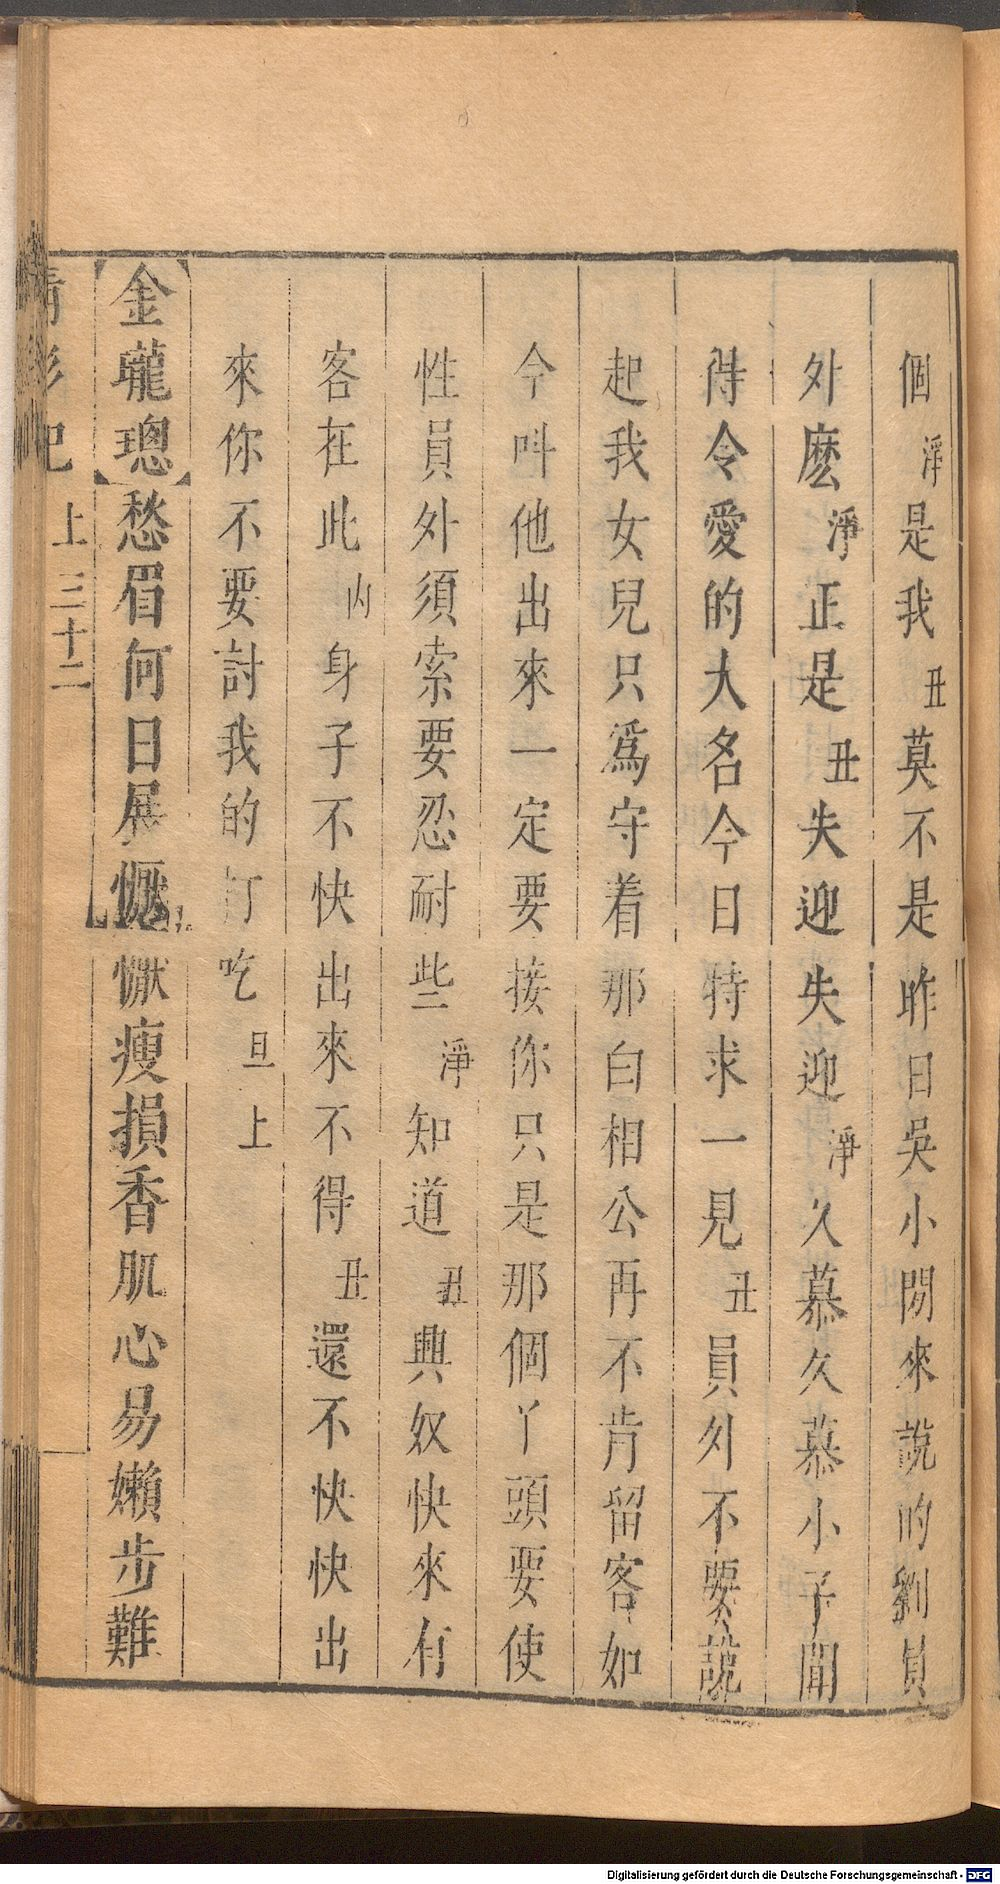 個淨是我丑莫不是昨日吳小閒來說的劉員
外麽淨正是丑失迎失迎淨久慕久慕小子聞
得令愛的大名今日特求一見丑員外不要說
起我女兒只爲守着那白相公再不肯留客如
今呌他出來一定要接你只是那個丫頭要使
性員外須索要忍耐些淨知道丑興奴快來有
客在此內身子不快出來不得丑還不快快出
來你不要討我的打吃旦上
【金蘢璁】愁眉何日展懨懨瘦損香肌心易嬾步難
情郵記 上 三十二
Digitalisierung gefördert durch die Deutsche Forschungsgemeinschaft - DFG